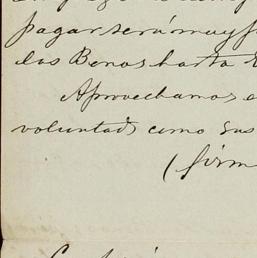 pagar será muy f
los Benos hasta
Aprovechamos e
voluntad como sus
(firm